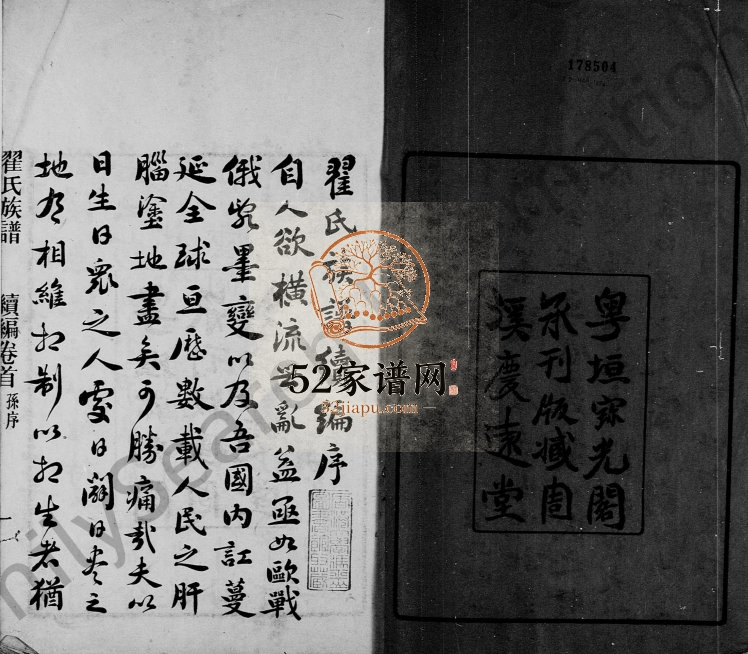 178504
粤垣
光閣
承刊版藏
溪慶遠堂
翟氏族譜續編序
自人欲橫流
亂益亟如歐戰
俄 墨變以及吾國內訌蔓
延全球亘歷數載人民之肝
腦塗地盡矣可勝痛哉夫以
日生日眾之人處日闢日
之
地 相維相制以相生者猶
翟氏族譜 續編卷首 孫序 一
52家谱网
52jiapu.com